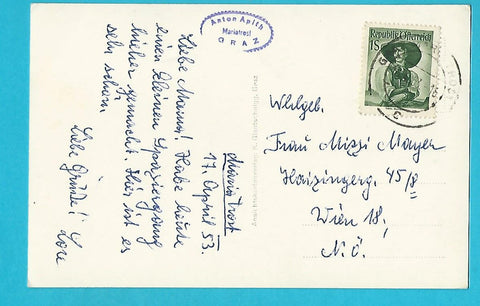 Anton Apith
Mariatrost
GRAZ
Republik Österreich
1S
Maria Trost
17. April 53.
Liebe Mama! Habe heute
einen kleinen Spaziergang
hieher gemacht. Hier ist es
sehr schön.
Liebe Grüße! Lore
Wohlgeb.
Frau Mizzi Mayer
Haizingerg. 45/8
Wien 18,
N.Ö.